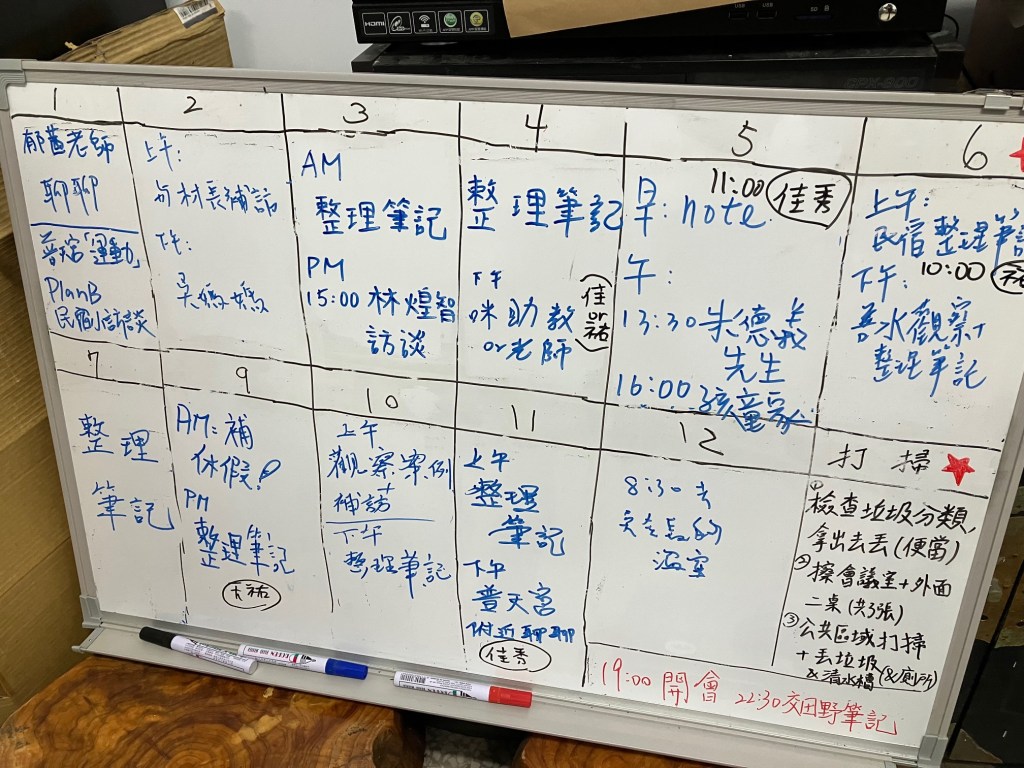 HDMI
USB
USB
1
郁茜老師
聊聊
「運動」
PlanB
民宿訪談
2
上午:
與村長補訪
下午:
吳媽媽
3
AM
整理筆記
PM
15:00 林煌智
訪談
4
整理筆記
下午
咪助教
or老師
(佳or祐)
5
11:00 佳秀
早: note
午:
13:30 朱德義
先生
16:00 孩童家
6
上午:
民宿整理筆記
10:00
下午:
善水觀察+
整理筆記
7
整理
筆記
9
AM: 補
休假!
PM
整理筆記
卡祐
10
上午
觀察案例
補訪
下午
整理筆記
11
上午
整理
筆記
下午
普天宮
附近聊聊
佳秀
12
8:30去
溫室
打掃
①檢查垃圾分類,
拿出去丟(便當)
②擦會議室+外面
二桌(共3張)
③公共區域打掃
+丟垃圾(&廁所)
&清水槽
19:00 開會 22:30交田野筆記